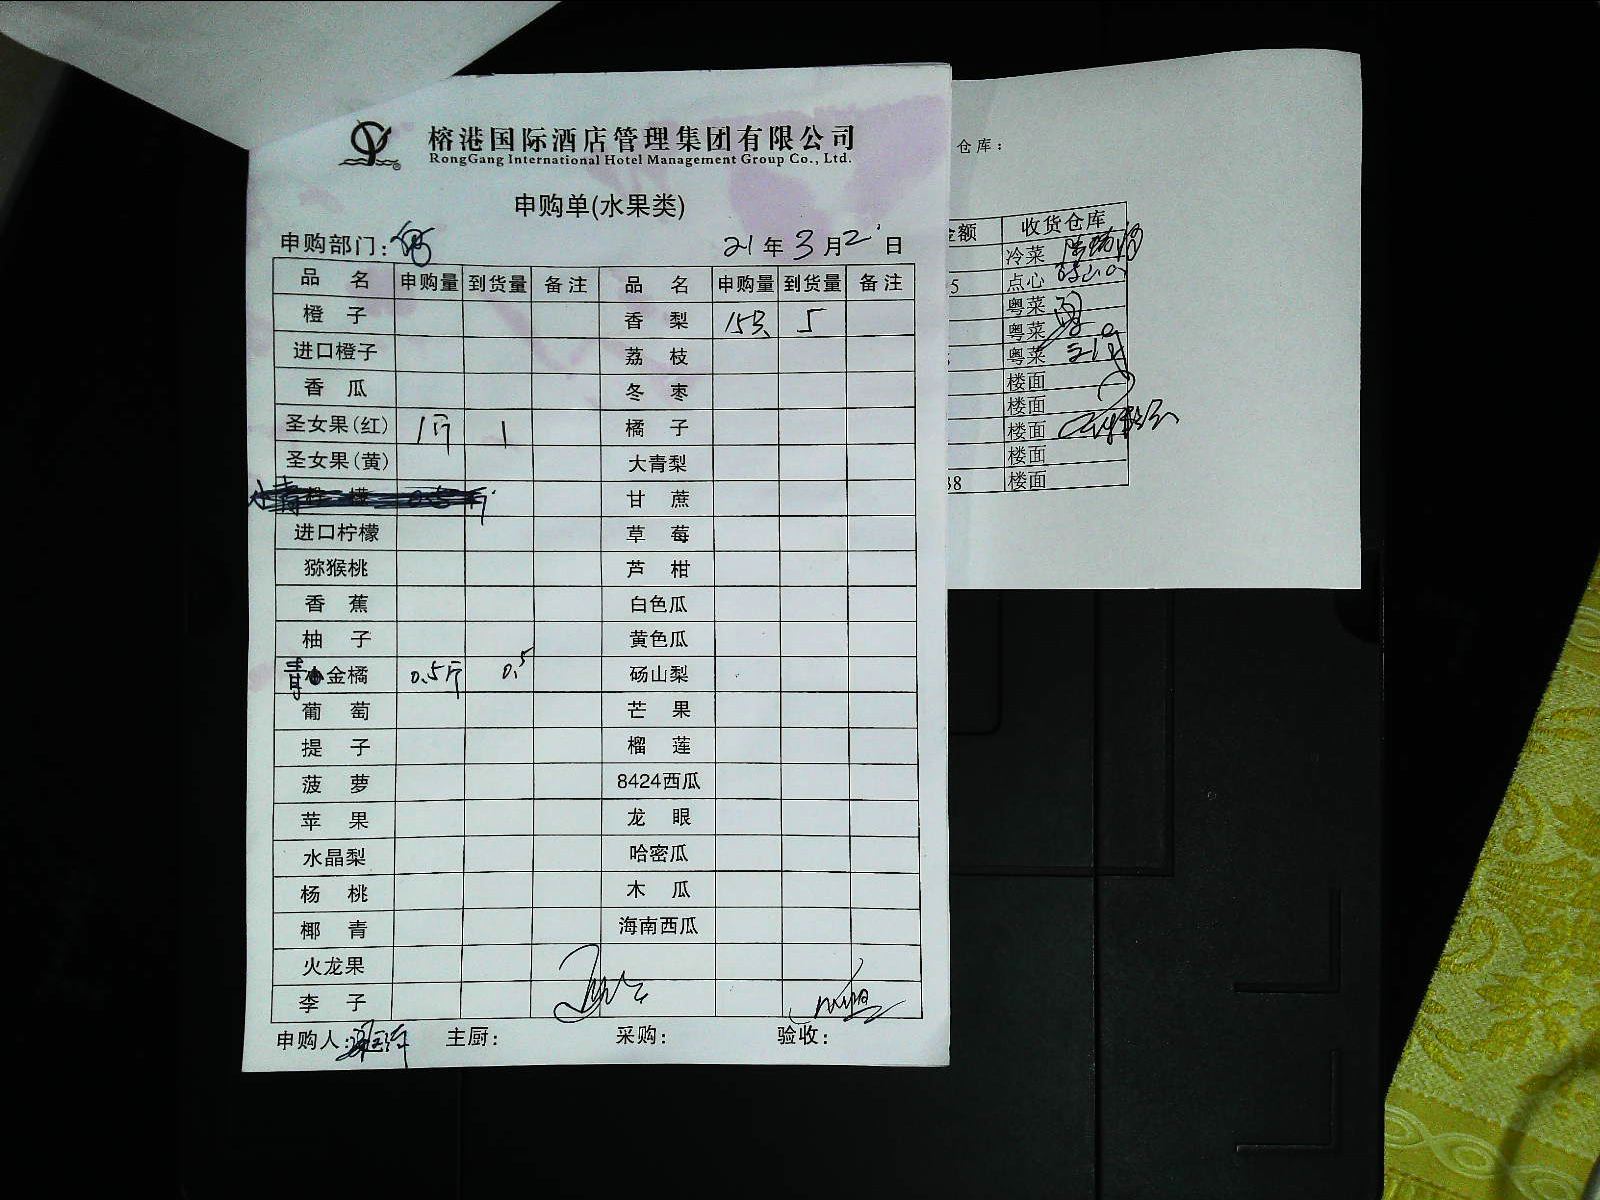 榕港国际酒店管理集团有限公司
RongGang International Hotel Management Group Co., Ltd.
申购单(水果类)
申购部门: 21年3月2日
品名 申购量 到货量 备注 品名 申购量 到货量 备注
橙子 香梨 15只 5
进口橙子 荔枝
香瓜 冬枣
圣女果(红) 1斤 1 橘子
圣女果(黄) 大青梨
甘蔗
进口柠檬 草莓
猕猴桃 芦柑
香蕉 白色瓜
柚子 黄色瓜
青金橘 0.5斤 0.5 砀山梨
葡萄 芒果
提子 榴莲
菠萝 8424西瓜
苹果 龙眼
水晶梨 哈密瓜
杨桃 木瓜
椰青 海南西瓜
火龙果
李子
申购人: 主厨: 采购: 验收:
仓库:
金额 收货仓库
冷菜
5 点心
粤菜
粤菜
粤菜
楼面
楼面
楼面
楼面
38 楼面